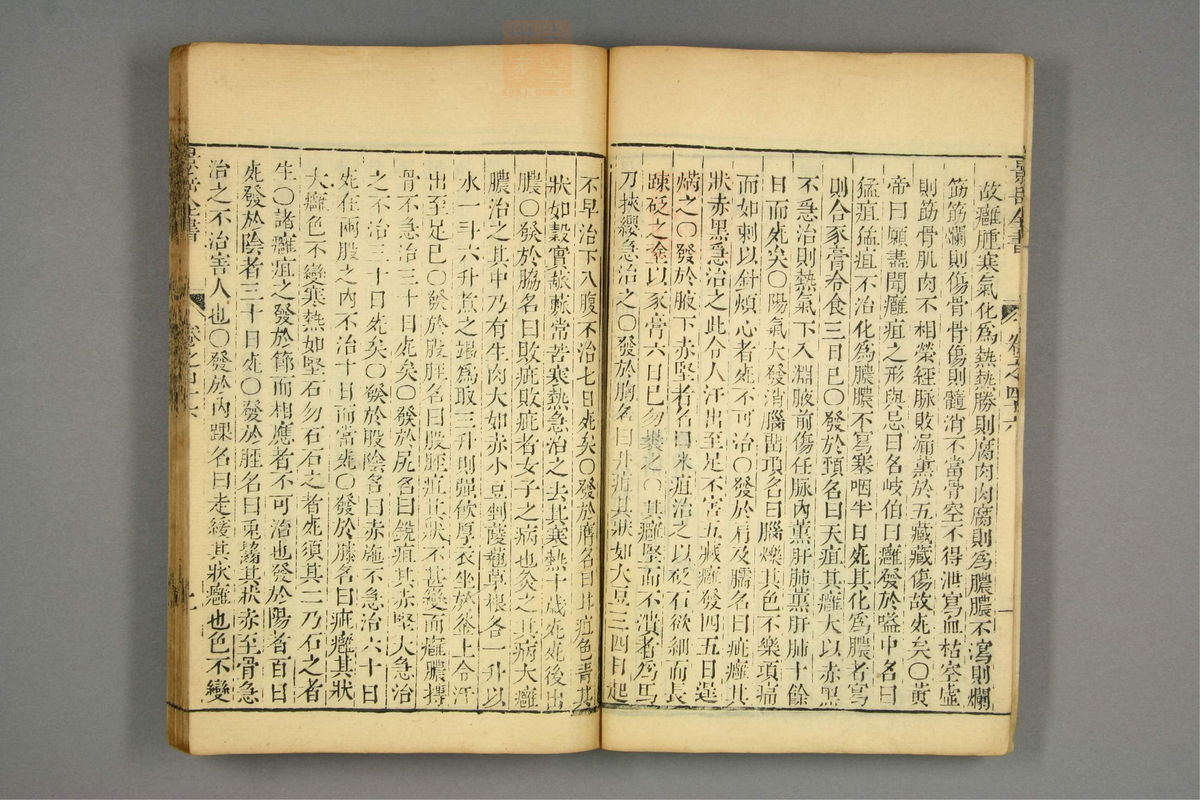 故癰腫寒氣化爲熱熱勝則腐肉肉腐則爲膿膿不瀉則爛
筋筋爛則傷骨骨傷則髓消不當骨空不得泄寫血枯空虛
則筋骨肌肉不相榮經脉敗漏薰於五藏藏傷故死矣○黃
帝曰願盡聞癰疽之形與忌曰名岐伯曰癰發於嗌中名曰
猛疽猛疽不治化爲膿膿不寫塞咽半日死其化爲膿者寫
則合豕膏冷食三日已○發於頚名曰天疽其癰大以赤黑
不急治則熱氣下入淵腋前傷任脉內薰肝肺薰肝肺十餘
日而死矣○陽氣大發消腦畱項名曰腦爍其色不樂項痛
而如刺以針煩心者死不可治○發於肩及臑名曰疵癰其
狀赤黑急治之此令人汗出至足不害五藏癰發四五日逞
焫之○發於腋下赤堅者名曰米疽治之以砭石欲細而長
踈砭之塗以豕膏六日已勿裹之○其癰堅而不潰者爲馬
刀挾纓急治之○發於胸名曰井疽其狀如大豆三四日起
不早治下入腹不治七日死矣○發於膺名曰甘疽色青其
狀如穀實瓞䔧常苦寒熱急治之去其寒熱十歲死死後出
膿○發於脇名曰敗疵敗疵者女子之病也灸之其病大癰
膿治之其中乃有生肉大如赤小豆剉䔖翹草根各一升以
水一斗六升煮之竭爲取三升則強飲厚衣坐於釜上令汗
出至足已○發於股脛名曰股脛疽其狀不甚變而癰膿摶
骨不急治三十日死矣○發於尻名曰銳疽其赤堅大急治
之不治三十日死矣○發於股陰名曰赤施不急治六十日
死在兩股之內不治十日而當死○發於膝名曰疵癰其狀
大癰色不變寒熱如堅石勿石石之者死須其二乃石之者
生○諸癰疽之發於節而相應者不可治也發於陽者百日
死發於陰者三十日死○發於脛名曰兎齧其狀赤至骨急
治之不治害人也○發於內踝名曰走緩其狀癰也色不變